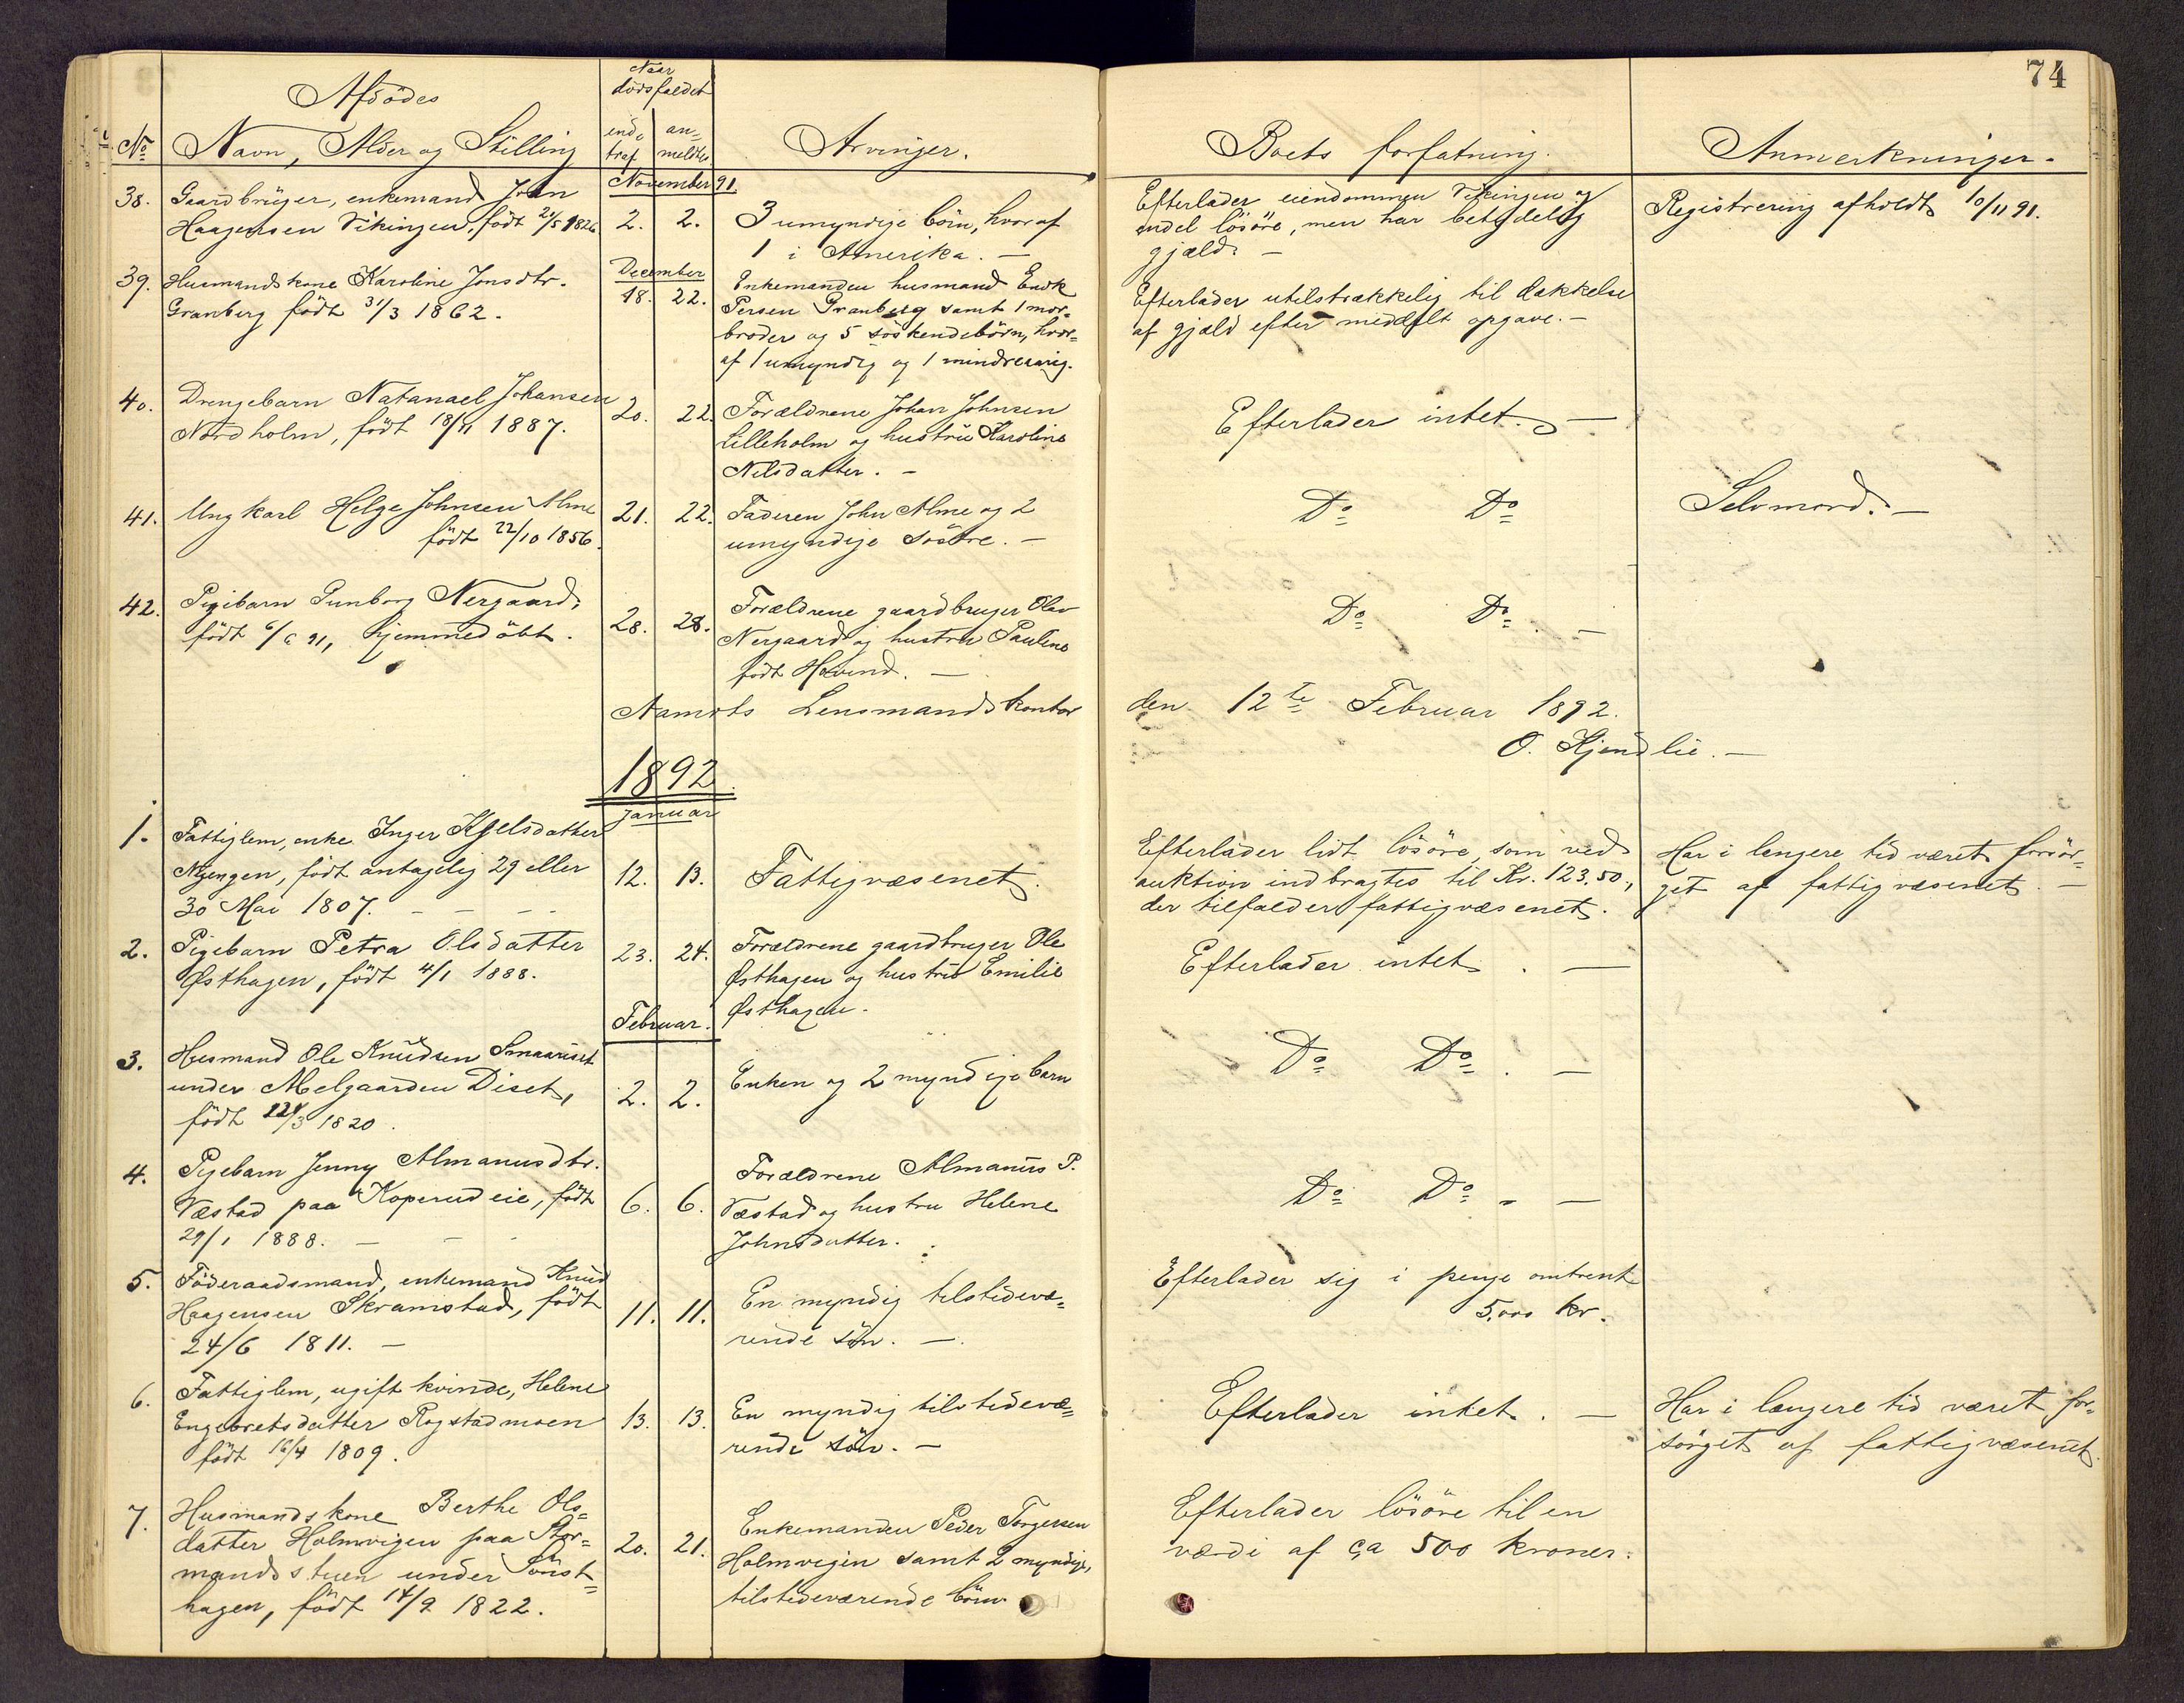 74
Afdödes
Navn, Alder og Stilling
Naar
dödsfaldet
No
indtraf
anmeldtes
Arvinger.
Boets forfatning.
Anmerkninger.
November 91.
38. Gaardbruger, enkemand John
Haagensen Vikingen, födt 21/5 1826
2. 2.
3 umyndige börn, hvoraf
1 i Amerika. —
Efterlader eiendommen Vikingen og
endel lösöre, men har betydelig
gjæld. —
Registrering afholdt 10/11 91.
December
39. Husmandskone Karoline Jonsdtr.
Granberg födt 31/3 1862.
18. 22.
Enkemanden husmand
Persen Granberg samt 1 mor-
broder og 5 söskendebörn, hvor-
af 1 umyndig og 1 mindreaarig.
Efterlader utilstrækkelig til dækkelse
af gjæld efter meddelt opgave. —
40. Drengebarn Natanael Johansen
Nordholm, födt 18/11 1887.
20. 22.
Forældrene Johan Johnsen
Lilleholm og hustru Karoline
Nilsdatter. —
Efterlader intet. —
41. Ungkarl Helge Johnsen Alme
födt 22/10 1856.
21. 22.
Faderen John Alme og 2
umyndige söstre. —
Do Do
Selvmord. —
42. Pigebarn Gunborg Nergaard,
födt 6/6 91, hjemmedöbt.
28. 28.
Forældrene gaardbruger Olav
Nergaard og hustru Pauline
födt Hovind. —
Do Do. —
Aamots Lensmandskontor den 12te Februar 1892.
O. Kjendlie. —
1892.
Januar
1. Fattiglem, enke Inger Kjelsdatter
Myengen, födt antagelig 29 eller
30 Mai 1807. — — —
12. 13.
Fattigvæsenet.
Efterlader lidt lösöre, som ved
auktion indbragtes til Kr. 123.50,
der tilfalder fattigvæsenet.
Har i længere tid været forsör-
get af fattigvæsenet. —
2. Pigebarn Petra Olsdatter
Østhagen, födt 4/1 1888.
23. 24.
Forældrene gaardbruger Ole
Østhagen og hustru Emilie
Østhagen.
Efterlader intet. —
Februar.
3. Husmand Ole Knudsen
under Melgaarden Diset,
födt 1820.
2. 2.
Enken og 2 myndige barn
Do Do. —
4. Pigebarn Jenny Almanusdtr.
Væstad paa Koperudeie, födt
29/1 1888. — —
6. 6.
Forældrene Almanus P.
Væstad og hustru Helene
Johnsdatter.
Do Do. —
5. Föderaadsmand, enkemand Knud
Haagensen Skramstad, födt
24/6 1811. —
11. 11.
En myndig tilstedevæ-
rende sön. —
Efterlader sig i penge omtrent
5,000 kr.
6. Fattiglem, ugift kvinde, Helene
Engebretsdatter Rogstadmoen
födt 16/4 1809.
13. 13.
En myndig tilstedevæ-
rende sön. —
Efterlader intet. —
Har i længere tid været for-
sörget af fattigvæsenet.
7. Husmandskone Berthe Ols-
datter Holmvigen paa Stor-
mandsstuen under Sönst-
hagen, födt 14/9 1822.
20. 21.
Enkemanden Peder Torgersen
Holmvigen samt 2 myndige,
tilstedeværende börn
Efterlader lösöre til en
værdi af ca 500 kroner.